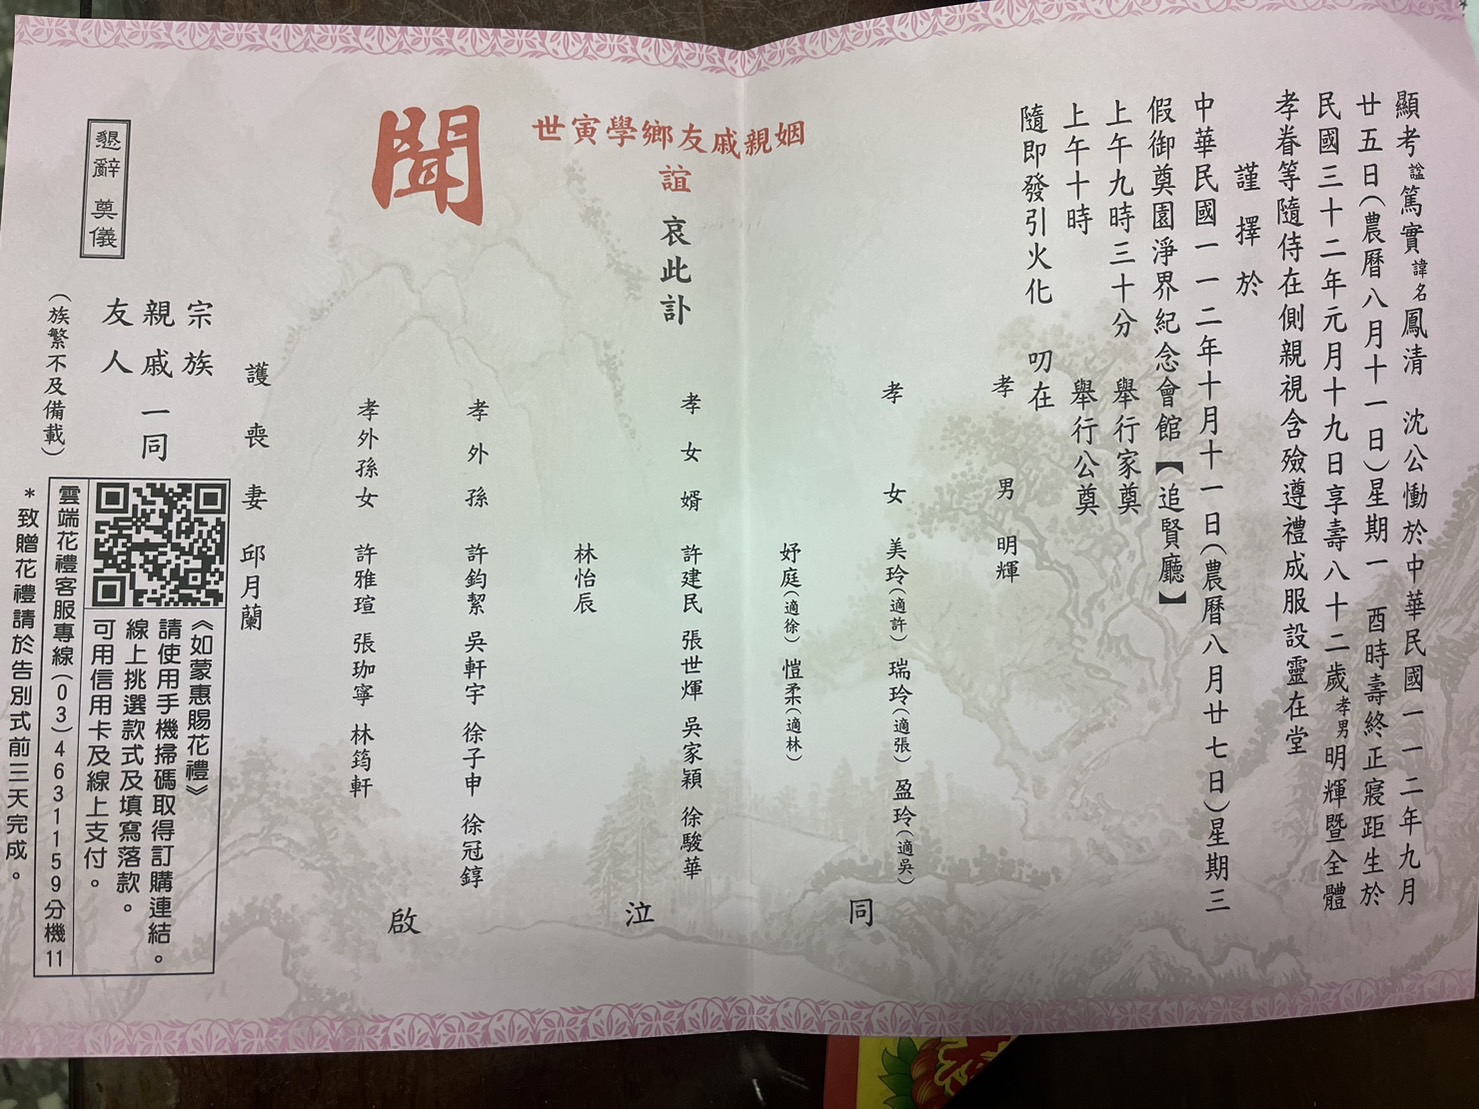 顯考諡篤實諱名鳳清　沈公慟於中華民國一一二年九月
廿五日(農曆八月十一日)星期一　酉時壽終正寢距生於
民國三十二年元月十九日享壽八十二歲孝男明輝暨全體
孝眷等隨侍在側親視含殮遵禮成服設靈在堂
謹擇於
中華民國一一二年十月十一日(農曆八月廿七日)星期三
假御奠園淨界紀念會館【追賢廳】
上午九時三十分　舉行家奠
上午十時　舉行公奠
隨即發引火化　叨在
姻親戚友鄉學寅世
誼　哀此訃
聞
孝男　明輝
孝女　美玲(適許)　瑞玲(適張)　盈玲(適吳)
妤庭(適徐)　愷柔(適林)
孝女婿　許建民　張世煇　吳家穎　徐駿華
林怡辰
孝外孫　許鈞絜　吳軒宇　徐子申　徐冠錞
孝外孫女　許雅瑄　張珈寧　林筠軒
護喪妻　邱月蘭
同
泣
啟
宗族
親戚一同
友人
(族繁不及備載)
懇辭　奠儀
《如蒙惠賜花禮》
請使用手機掃碼取得訂購連結。
線上挑選款式及填寫落款。
可用信用卡及線上支付。
雲端花禮客服專線(03)4631159分機11
*致贈花禮請於告別式前三天完成。